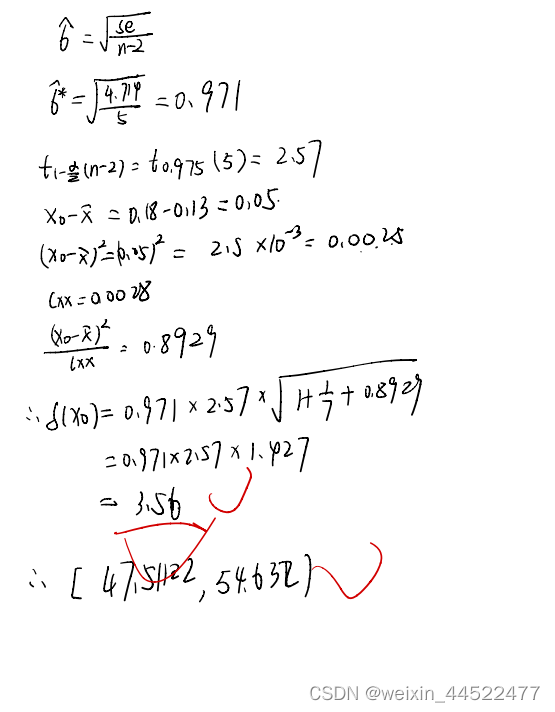 σ̂ = √(Se/(n-2))
σ̂* = √(4.714/5) = 0.971
t₁₋α/₂(n-2) = t0.975(5) = 2.57
x₀-x̄ = 0.18-0.13 = 0.05
(x₀-x̄)² = (0.05)² = 2.5 × 10⁻³ = 0.0025
lxx = 0.0028
(x₀-x̄)²/lxx = 0.8929
∴ δ(x₀) = 0.971 × 2.57 × √(1+1/7+0.8929)
= 0.971×2.57×1.427
= 3.56
∴ [ 47.51122, 54.632]
CSDN @weixin_44522477